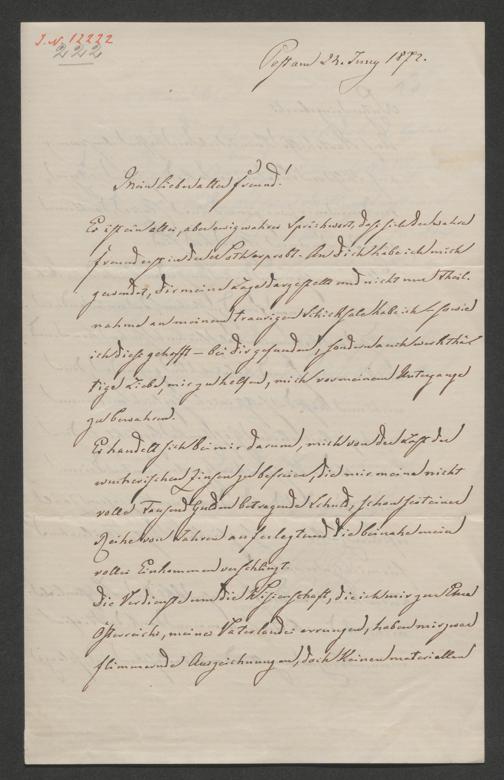 J. N. 12222
222
Pest am 23. Juny 1872.
Mein lieber alter Freund!
Es ist ein altes, aber ewig wahres Sprichwort, daß sich der wahre
Freund erst in der Noth erprobt. An dich habe ich mich
gewendet, dir meine Lage dargestellt und nicht nur Theil-
nahme an meinem traurigen Schicksale habe ich – so wie
ich dieß gehofft – bei dir gefunden, sondern auch werkthä-
tige Liebe, mir zu helfen, mich vor meinem Untergange
zu bewahren.
Es handelt sich bei mir darum, mich von der Last der
wucherischen Zinsen zu befreien, die mir meine nicht
volle Tausend Gulden betragende Schuld, schon seit einer
Reihe von Jahren auferlegt und die beinahe mein
volles Einkommen verschlingt.
Die Verdienste um die Wissenschaft, die ich mir zur Ehre
Österreichs, meines Vaterlandes errungen, haben mir zwar
flimmernde Auszeichnungen, doch keinen materiellen